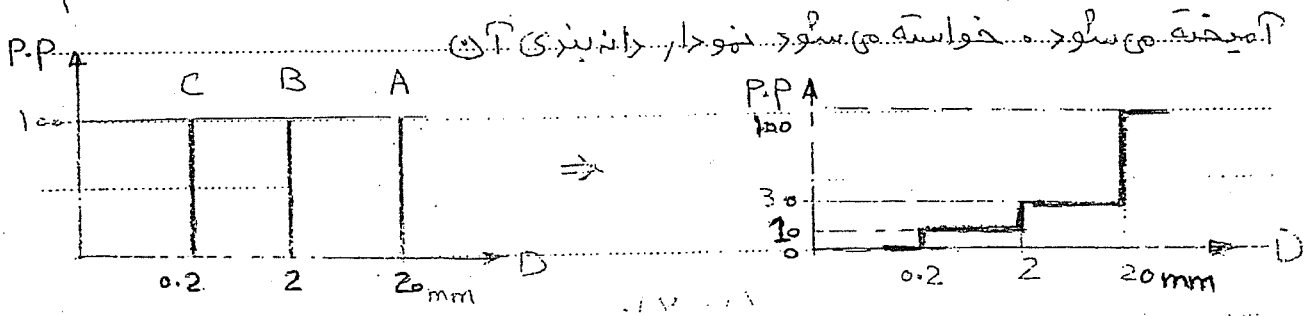 آمیخته می‌شود. خواسته می‌شود نمودار دانه بندی آن
P.P
C B A
100
0.2 2 20mm
D
⇒
P.P
100
30
10
0
0.2 2 20mm
D